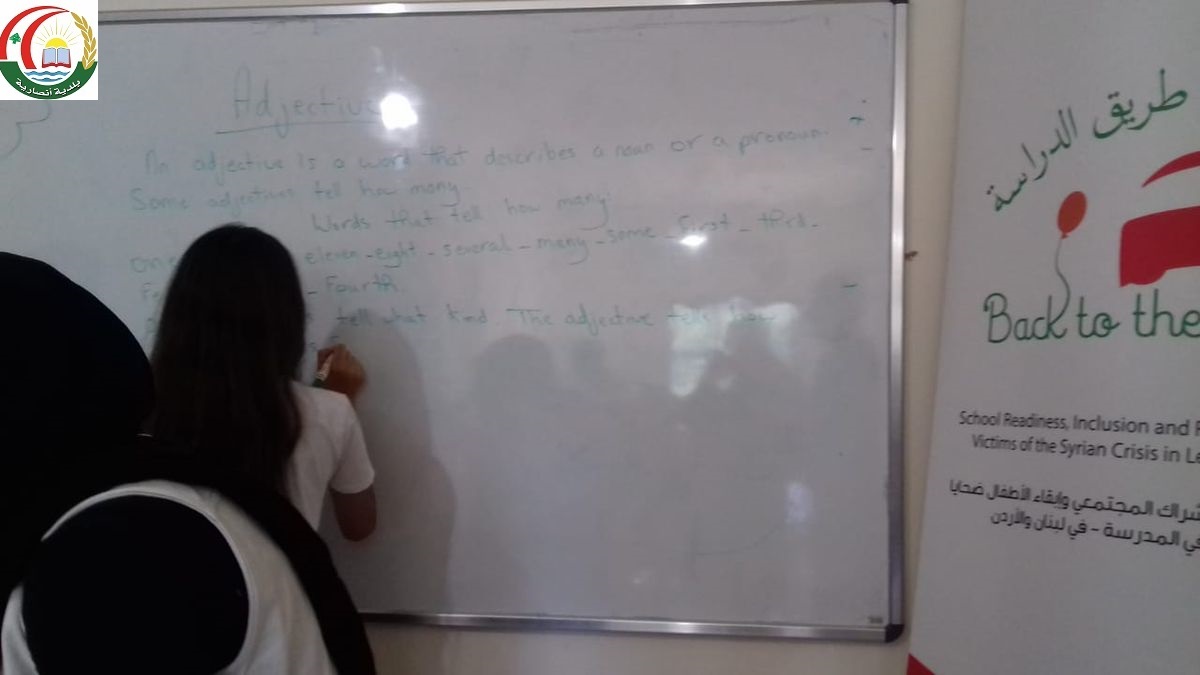 بلدية أنصارية
Adjective
An adjective is a word that describes a noun or a pronoun.
Some adjectives tell how many.
Words that tell how many:
one eleven - eight - several - many - some - first - third -
- Fourth.
tell what kind. The adjective tells how
طريق الدراسة
Back to the
School Readiness, Inclusion and
Victims of the Syrian Crisis in
المجتمعي وإبقاء الأطفال ضحايا
المدرسة - في لبنان والأردن